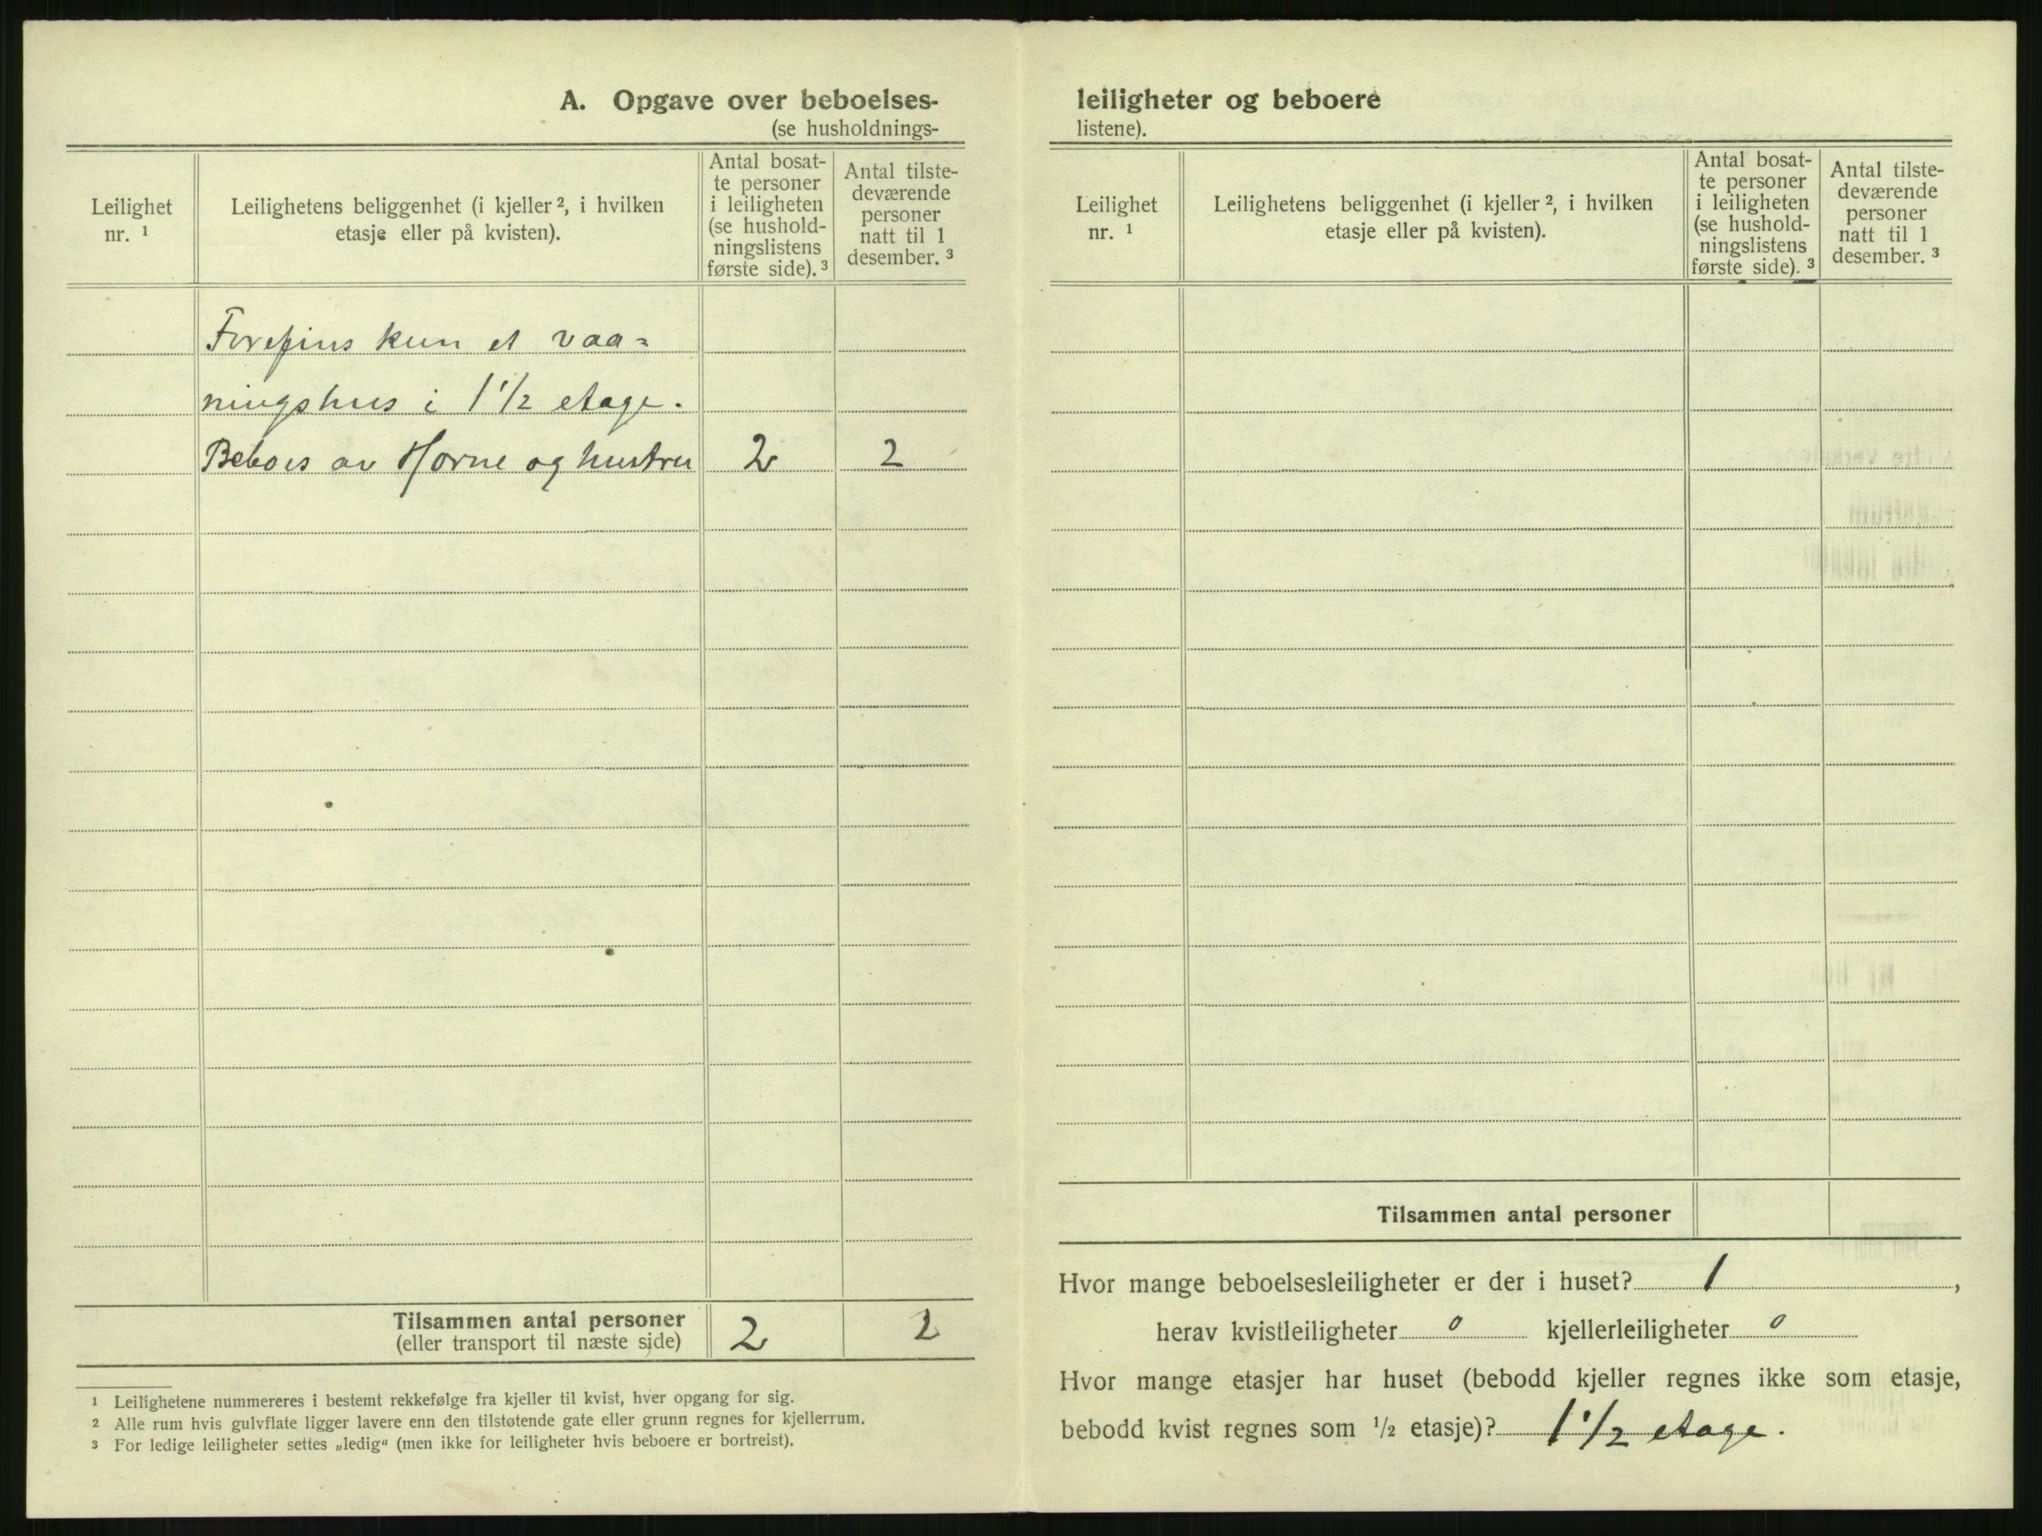 A. Opgave over beboelses-
(se husholdnings-
Leilighet nr. ¹
Leilighetens beliggenhet (i kjeller ², i hvilken etasje eller på kvisten).
Antal bosat-
te personer
i leiligheten
(se hushold-
ningslistens
første side). ³
Antal tilste-
deværende
personer
natt til 1
desember. ³
Forefins kun et vaa=
ningshus i 1 1/2 etage.
Beboes av Horne og hustru 2 2
Tilsammen antal personer 2 2
(eller transport til næste side)
¹ Leilighetene nummereres i bestemt rekkefølge fra kjeller til kvist, hver opgang for sig.
² Alle rum hvis gulvflate ligger lavere enn den tilstøtende gate eller grunn regnes for kjellerrum.
³ For ledige leiligheter settes „ledig“ (men ikke for leiligheter hvis beboere er bortreist).
leiligheter og beboere
listene).
Leilighet nr. ¹
Leilighetens beliggenhet (i kjeller ², i hvilken etasje eller på kvisten).
Antal bosat-
te personer
i leiligheten
(se hushold-
ningslistens
første side). ³
Antal tilste-
deværende
personer
natt til 1
desember. ³
Tilsammen antal personer
Hvor mange beboelsesleiligheter er der i huset? 1 ,
herav kvistleiligheter 0 kjellerleiligheter 0
Hvor mange etasjer har huset (bebodd kjeller regnes ikke som etasje,
bebodd kvist regnes som ¹/₂ etasje)? 1 1/2 etage.